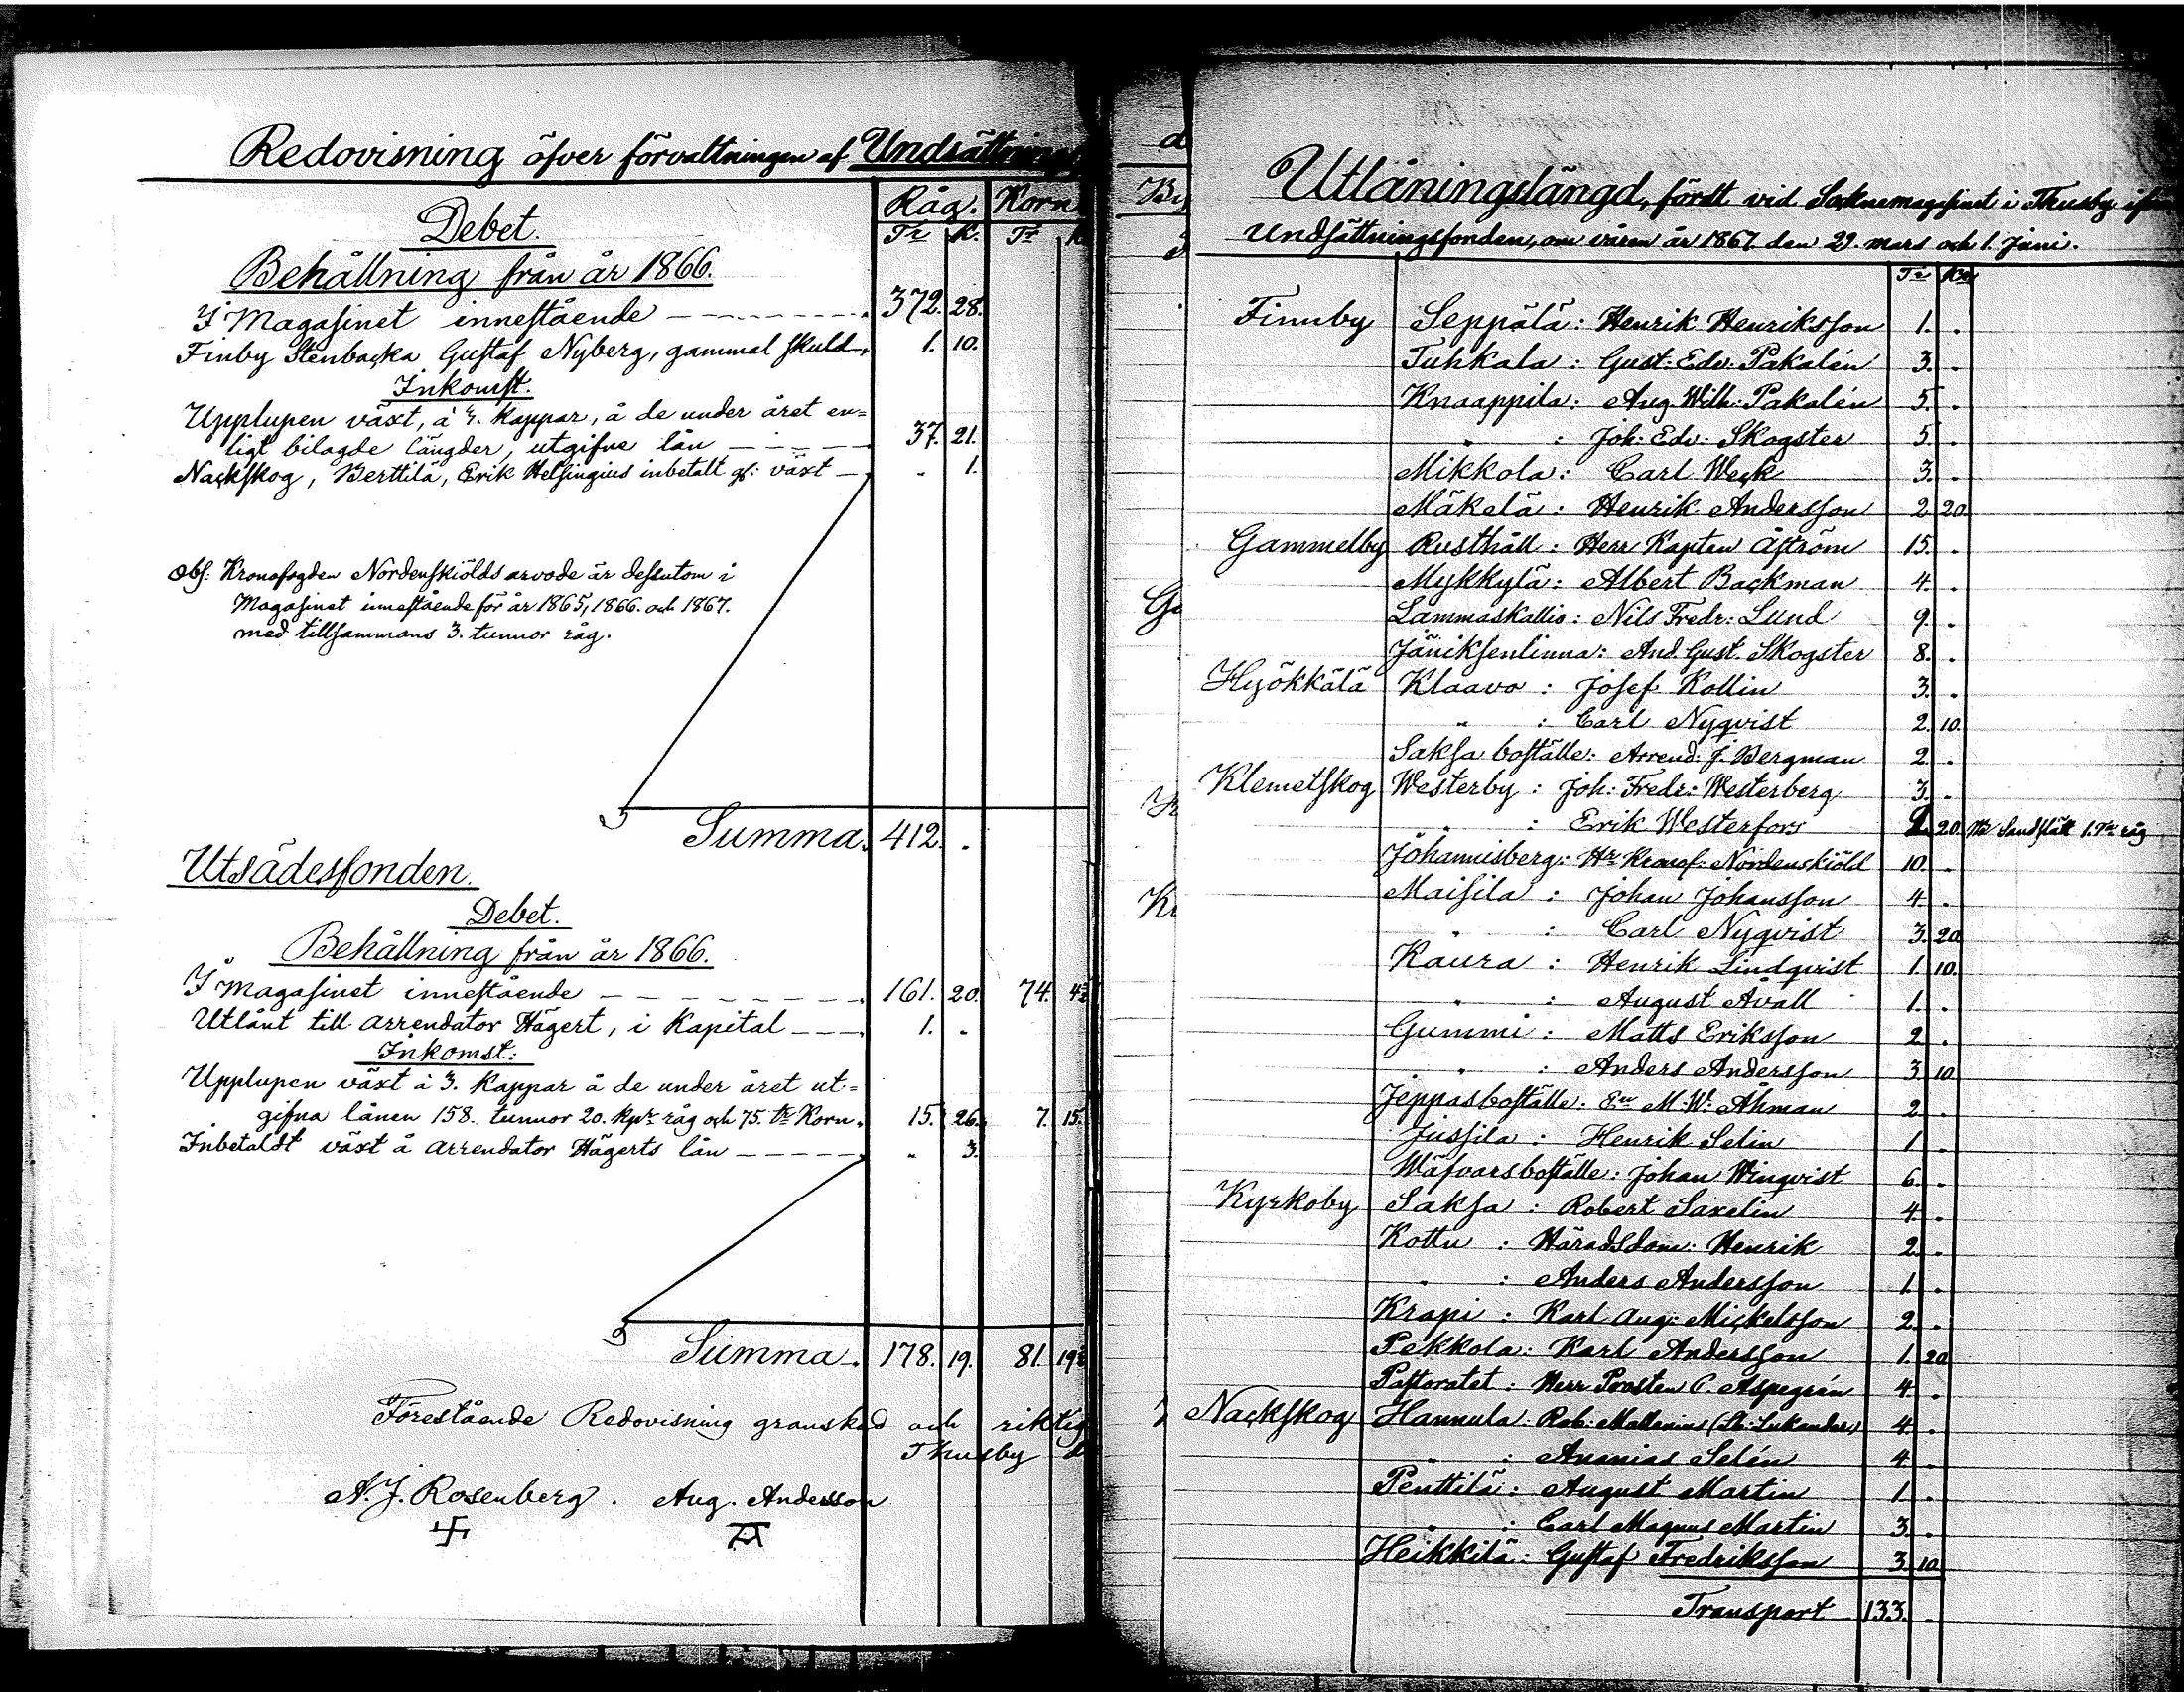 Redovisning öfver förvaltningen af Undsättnings
Råg. Korn
Debet.
Tr K. Tr K
Behållning från år 1866.
I Magasinet innestående 372. 28.
Finby Stenbacka Gustaf Nyberg, gammal skuld. 1. 10.
Inkomst.
Upplupen växt, à 4. kappar, å de under året en=
ligt bilagde längder, utgifne lån 37. 21.
Nackskog, Berttila, Erik Helsingius inbetalt gl: växt " 1.
Obs: Kronofogden Nordenskiölds arvode är dessutom i
Magasinet innestående för år 1865, 1866. och 1867.
med tillsammans 3. tunnor råg.
Summa. 412. .
Utsädesfonden.
Debet.
Behållning från år 1866.
I Magasinet innestående 161. 20. 74. 4½
Utlånt till Arrendator Hägert, i Kapital 1. .
Inkomst:
Upplupen växt à 3. kappar å de under året ut=
gifna lånen 158. tunnor 20. kpr råg och 75. tr Korn. 15. 26. 7. 15.
Inbetaldt växt å Arrendator Hägerts lån " 3.
Summa. 178. 19. 81. 19½
Förestående Redovisning granskad och riktig
Thusby
A. J. Rosenberg. Aug. Andersson
Utlåningslängd, fördt vid Socknemagasinet i Thusby ifrån
Undsättningsfonden, om våren år 1867. den 29. mars och 1. Juni.
Tr Kr
Finnby Seppälä: Henrik Henriksson 1. .
Tuhkala: Gust: Edv: Pakalén 3. .
Knaappila: Aug Wilh: Pakalén 5. .
" : Joh: Edv: Skogster 5 .
Mikkola: Carl Weck 3. .
Mäkelä: Henrik Andersson 2 20.
Gammelby Rusthåll: Herr Kapten Åström 15. .
Mykkylä: Albert Backman 4. .
Lammaskallio: Nils Fredr: Lund 9. .
Jäniksenlinna: And. Gust. Skogster 8. .
Hyökkälä Klaavo: Josef Kollin 3. .
" : Carl Nyqvist 2. 10.
Saksa boställe: Arrend: J. Bergman 2 .
Klemetskog Westerby: Joh: Fredr: Westerberg 3. .
" : Erik Westerfors 2. 20. 1. Tr råg
Johannisberg: Hr Kronof: Nordenskiöld 10. .
Maisila: Johan Johansson 4 .
" : Carl Nyqvist 3. 20.
Kaura: Henrik Lindqvist 1. 10.
" : August Avall 1. .
Gummi: Matts Eriksson 2 .
" : Anders Andersson 3. 10
Jeppasboställe: M: W: Åhman 2. .
Jussila: Henrik Selin 1 .
Wäfvarsboställe: Johan Winqvist 6. .
Kyrkoby Saksa: Robert Saxelin 4. .
Kottu: Häradsdom: Henrik 2. .
" : Anders Andersson 1. .
Krapi: Karl Aug: Mickelsson 2. .
Pekkola: Karl Andersson 1. 20
Pastoratet: Herr Prosten C. Aspegrén 4 .
Nackskog Hannula: Rob: Mallenius 4. .
" : Ananias Selén 4 .
Penttilä: August Martin 1. .
" : Carl Magnus Martin 3. .
Heikkilä: Gustaf Fredriksson 3. 10.
Transport 133. .